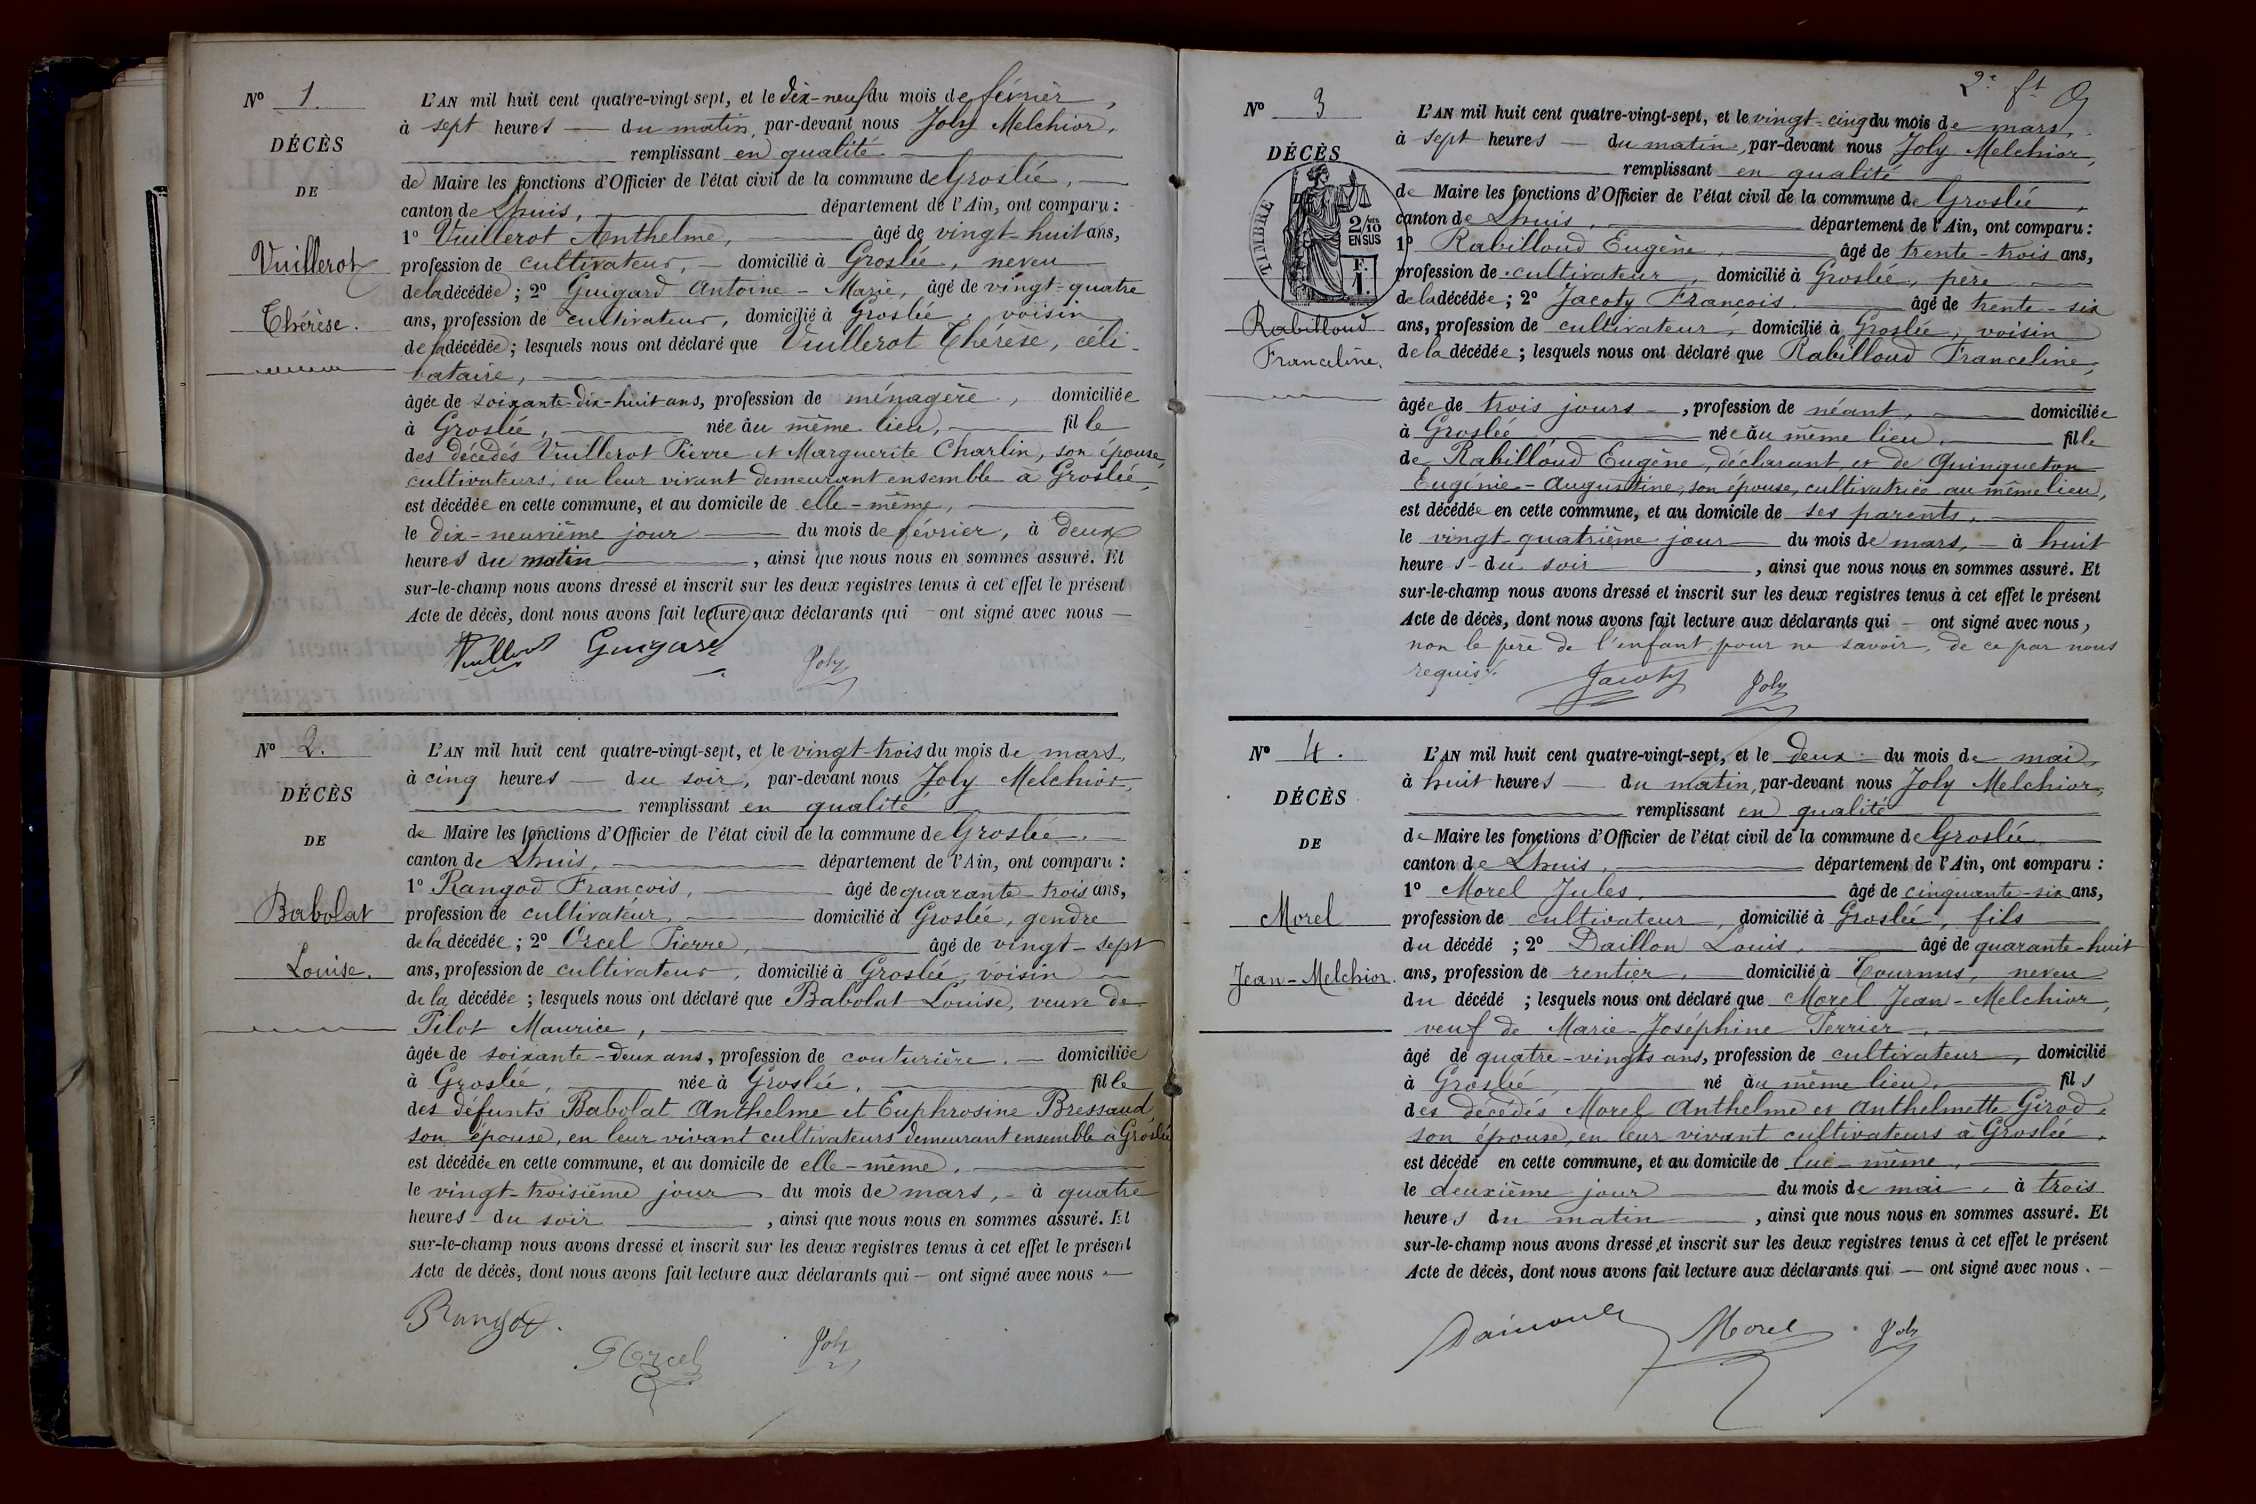 N° 1.
DÉCÈS
DE
Vuillerot
Thérèse.
L'AN mil huit cent quatre-vingt-sept, et le dix-neuf du mois de février,
à sept heures — du matin, par-devant nous Joly Melchior,
remplissant en qualité
de Maire les fonctions d'Officier de l'état civil de la commune de Groslée,
canton de Lhuis, département de l'Ain, ont comparu :
1° Vuillerot Anthelme, âgé de vingt-huit ans,
profession de cultivateur, domicilié à Groslée, neveu
de la décédée ; 2° Guigard Antoine-Marie, âgé de vingt-quatre
ans, profession de cultivateur, domicilié à Groslée, voisin
de la décédée ; lesquels nous ont déclaré que Vuillerot Thérèse, céli-
bataire,
âgée de soixante-dix-huit ans, profession de ménagère, domiciliée
à Groslée, née au même lieu, fille
des décédés Vuillerot Pierre et Marguerite Charlin, son épouse,
cultivateurs, en leur vivant demeurant ensemble à Groslée,
est décédée en cette commune, et au domicile de elle-même,
le dix-neuvième jour du mois de février, à deux
heures du matin, ainsi que nous nous en sommes assuré. Et
sur-le-champ nous avons dressé et inscrit sur les deux registres tenus à cet effet le présent
Acte de décès, dont nous avons fait lecture aux déclarants qui — ont signé avec nous —
Vuillerot Guigard Joly
N° 2.
DÉCÈS
DE
Babolat
Louise.
L'AN mil huit cent quatre-vingt-sept, et le vingt-trois du mois de mars,
à cinq heures — du soir, par-devant nous Joly Melchior,
remplissant en qualité
de Maire les fonctions d'Officier de l'état civil de la commune de Groslée.
canton de Lhuis, département de l'Ain, ont comparu :
1° Rangod François, âgé de quarante-trois ans,
profession de cultivateur, domicilié à Groslée, gendre
de la décédée ; 2° Orcel Pierre, âgé de vingt-sept
ans, profession de cultivateur, domicilié à Groslée, voisin
de la décédée ; lesquels nous ont déclaré que Babolat Louise, veuve de
Pilot Maurice,
âgée de soixante-deux ans, profession de couturière. — domiciliée
à Groslée, née à Groslée, fille
des défunts Babolat Anthelme et Euphrosine Bressaud,
son épouse, en leur vivant cultivateurs demeurant ensemble à Groslée
est décédée en cette commune, et au domicile de elle-même,
le vingt-troisième jour du mois de mars, à quatre
heures du soir, ainsi que nous nous en sommes assuré. Et
sur-le-champ nous avons dressé et inscrit sur les deux registres tenus à cet effet le présent
Acte de décès, dont nous avons fait lecture aux déclarants qui — ont signé avec nous —
Rangod.
Orcel Joly
2e ft
N° 3
DÉCÈS
TIMBRE
2/10
EN SUS
F.
1.
Rabilloud
Franceline.
L'AN mil huit cent quatre-vingt-sept, et le vingt-cinq du mois de mars,
à sept heures — du matin, par-devant nous Joly Melchior,
remplissant en qualité
de Maire les fonctions d'Officier de l'état civil de la commune de Groslée,
canton de Lhuis, département de l'Ain, ont comparu :
1° Rabilloud Eugène, âgé de trente-trois ans,
profession de cultivateur, domicilié à Groslée, père
de la décédée ; 2° Jacoty François, âgé de trente-six
ans, profession de cultivateur, domicilié à Groslée, voisin
de la décédée ; lesquels nous ont déclaré que Rabilloud Franceline,
âgée de trois jours, profession de néant, domiciliée
à Groslée née au même lieu, fille
de Rabilloud Eugène, déclarant, et de Quinqueton
Eugénie-Augustine, son épouse, cultivatrice au même lieu,
est décédée en cette commune, et au domicile de ses parents,
le vingt-quatrième jour du mois de mars, à huit
heures du soir, ainsi que nous nous en sommes assuré. Et
sur-le-champ nous avons dressé et inscrit sur les deux registres tenus à cet effet le présent
Acte de décès, dont nous avons fait lecture aux déclarants qui — ont signé avec nous,
non le père de l'enfant pour ne savoir, de ce par nous
requis.
Jacoty Joly
N° 4.
DÉCÈS
DE
Morel
Jean-Melchior.
L'AN mil huit cent quatre-vingt-sept, et le deux du mois de mai,
à huit heures — du matin, par-devant nous Joly Melchior,
remplissant en qualité
de Maire les fonctions d'Officier de l'état civil de la commune de Groslée
canton de Lhuis, département de l'Ain, ont comparu :
1° Morel Jules, âgé de cinquante-six ans,
profession de cultivateur, domicilié à Groslée, fils
du décédé ; 2° Daillon Louis, âgé de quarante-huit
ans, profession de rentier, domicilié à Tournus, neveu
du décédé ; lesquels nous ont déclaré que Morel Jean-Melchior,
veuf de Marie-Joséphine Perrier,
âgé de quatre-vingts ans, profession de cultivateur, domicilié
à Groslée né au même lieu, fils
des décédés Morel Anthelme et Anthelmette Girod,
son épouse, en leur vivant cultivateurs à Groslée,
est décédé en cette commune, et au domicile de lui-même,
le deuxième jour du mois de mai, à trois
heures du matin, ainsi que nous nous en sommes assuré. Et
sur-le-champ nous avons dressé et inscrit sur les deux registres tenus à cet effet le présent
Acte de décès, dont nous avons fait lecture aux déclarants qui — ont signé avec nous. —
Morel Joly